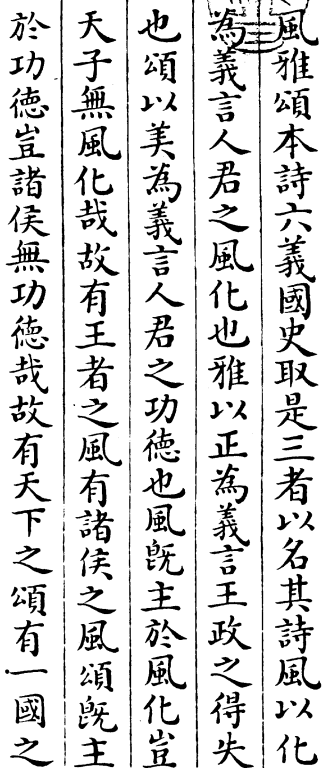 風雅頌本詩六義國史取是三者以名其詩風以化
為義言人君之風化也雅以正為義言王政之得失
也頌以美為義言人君之功徳也風既主於風化豈
天子無風化哉故有王者之風有諸侯之風頌既主
於功徳豈諸侯無功徳哉故有天下之頌有一國之